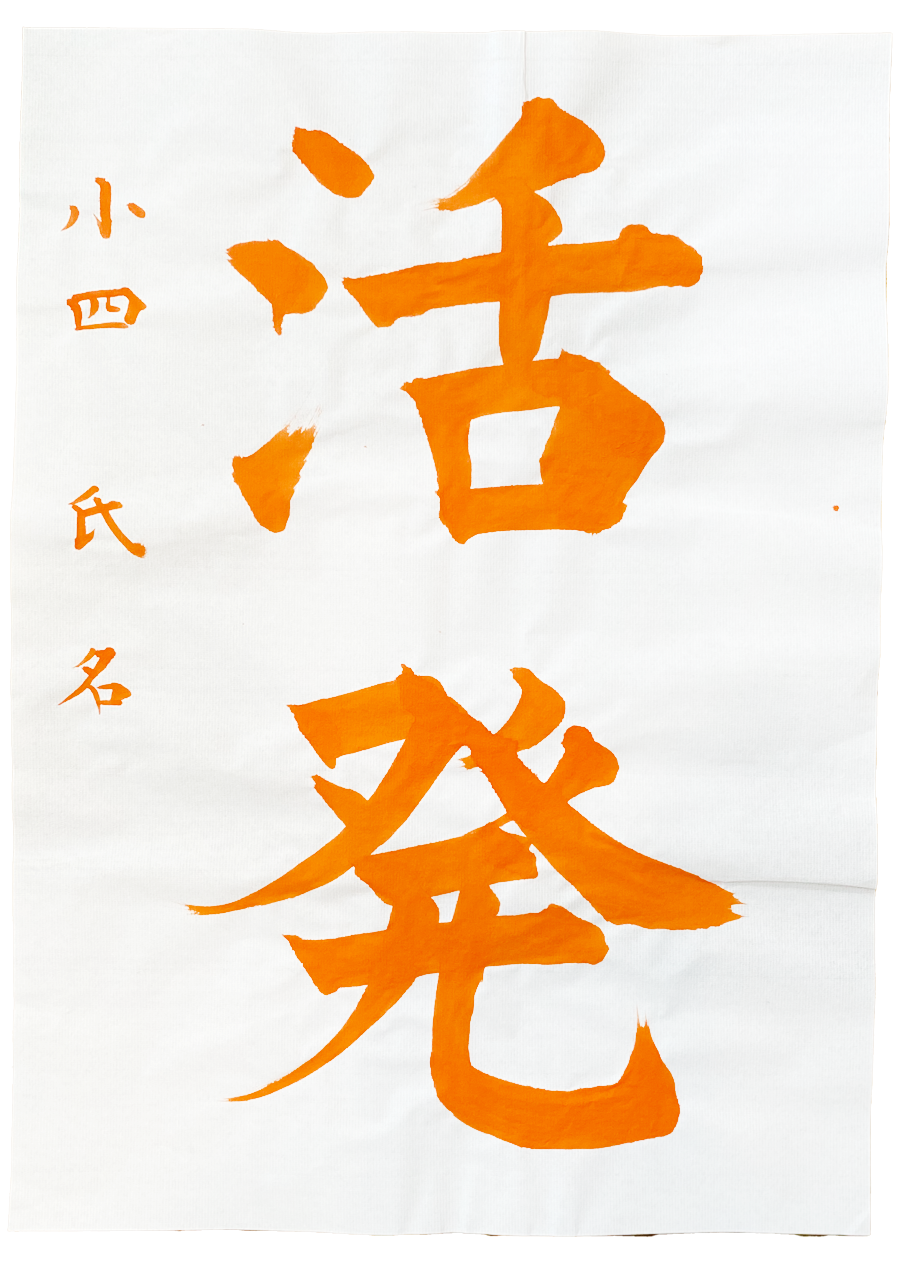 活発
小四 氏名